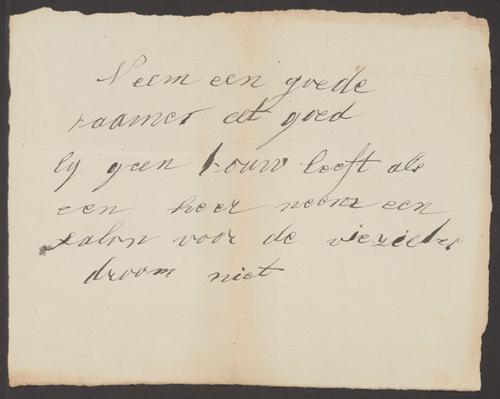 Neem een goede
kaamer eet goed
ly geen kouw leeft als
een heer neem een
salon voor de
droom niet